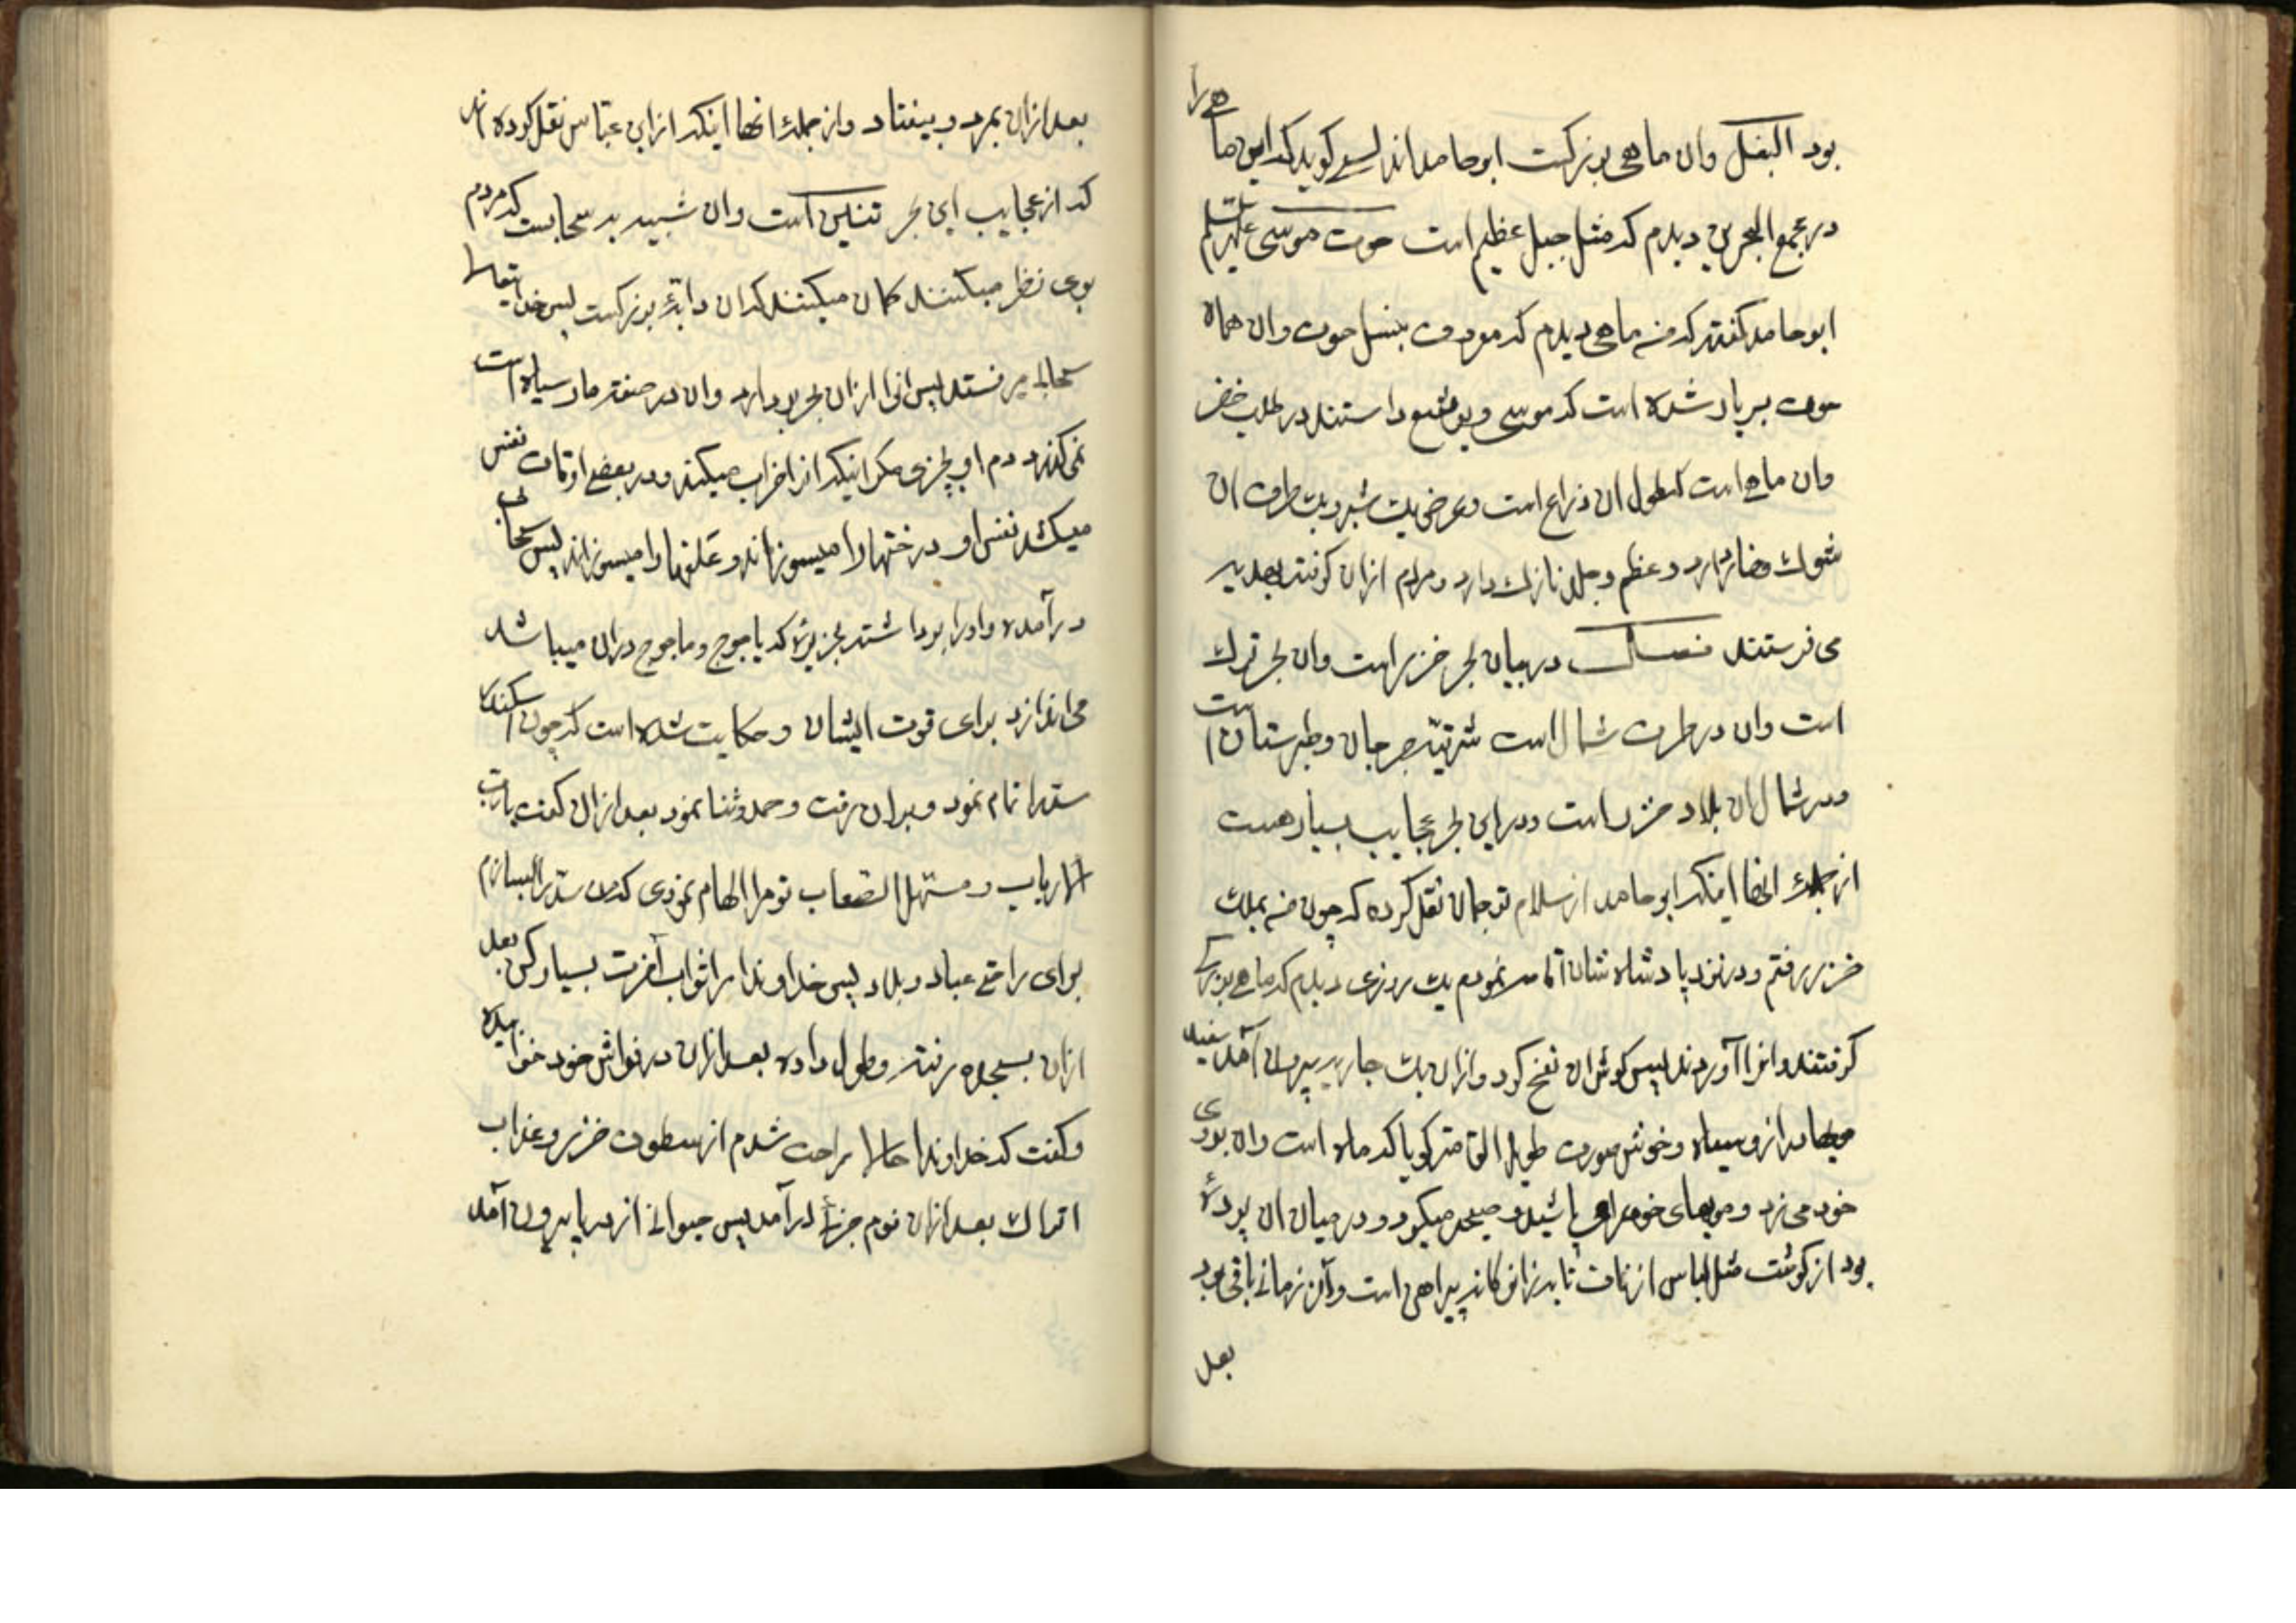 بود البغل وان ماهی بزرکست ابوحامد اندلسی کوید که این ماهی را
در مجمع البحرین دیدم که مثل جبل عظیم است حوت موسی علیه السلم
ابوحامد کفته که منه ماهی دیدم که معروف بنسل حوت وان هماه
حوت بریاد شده است که موسی ویوشع داستند در طلب خضر
وان ماهی است که طول ان ذراع است وعرض یک شبر ویک طرف ان
شوک وخار دارد وعظم وجلد نازک دارد ومردم ازان کوفته بهدیه
می فرستند فصل در بیان بحر خزر است وان بحر ترک
است وان در طرف شمال است شرقیه جرجان وطبرستان است
ودر شمال ان بلاد خزر است ودر این بحر عجایب بسیار هست
از جمله انها اینکه ابوحامد از سلام ترجمان نقل کرده که چون منه بملک
خزر رفتم ودر نزد پادشاه شان اقامه نمودم یک روزی دیدم که ماهی بزرکی
کرفتند وانرا آوردند پس کوش ان نفخ کرد وازان یک جاریه بیرون آمد سفید
موها دراز وسیاه وخوش صورت طویل القامه کویا که ماه است وان بروی
خود می زد وموهای خود را می پاشید وصیحه میکرد ودر میان ان پردهٔ
بود از کوشت مثل لباس از ناف تا به زانو کانه پیراهن است وآن زمانی باقی بود
بعد
بعد ازان بمرد وبیفتاد واز جمله انها اینکه از ابن عباس نقل کوده اند
که از عجایب این بحر تنین است وان شبیه به سحابست که مردم
بوی نظر میکنند کمان میکنند که ان دابهٔ بزرکست پس خدایتعالا
سحاب میرفستد پس انرا ازان بحر بردارد وان در صفت مار سیاه است
نمی کذرد دم او بچیزی مکر اینکه انرا خراب میکند ودر بعضی اوقات نفس
میکشد نفس او درختها را میسوزاند وعلفها را میسوزاند پس سحابی
درآمده واورا بوداشته بجزیرهٔ که یاجوج وماجوج دران میباشد
می اندازد برای قوت ایشان وحکایت شده است که چون اسکندر
سد را تمام نمود وبران رفت وحمد وثنا نمود بعد ازان کفت یارب
الارباب ومسهل الصعاب تو مرا الهام نمودی که من سد را بسازم
برای راحتی عباد وبلاد پس خداوندا مرا ثواب آخرت بسیار کن بعد
ازان بسجده رفته وطول داده بعد ازان در فراش خود خوابیده
وکفت که خداوندا حالا راحت شدم از سطوت خزر وعذاب
اتراک بعد ازان نوم جزئی درآمد پس حیوانی از دریا بیرون آمد